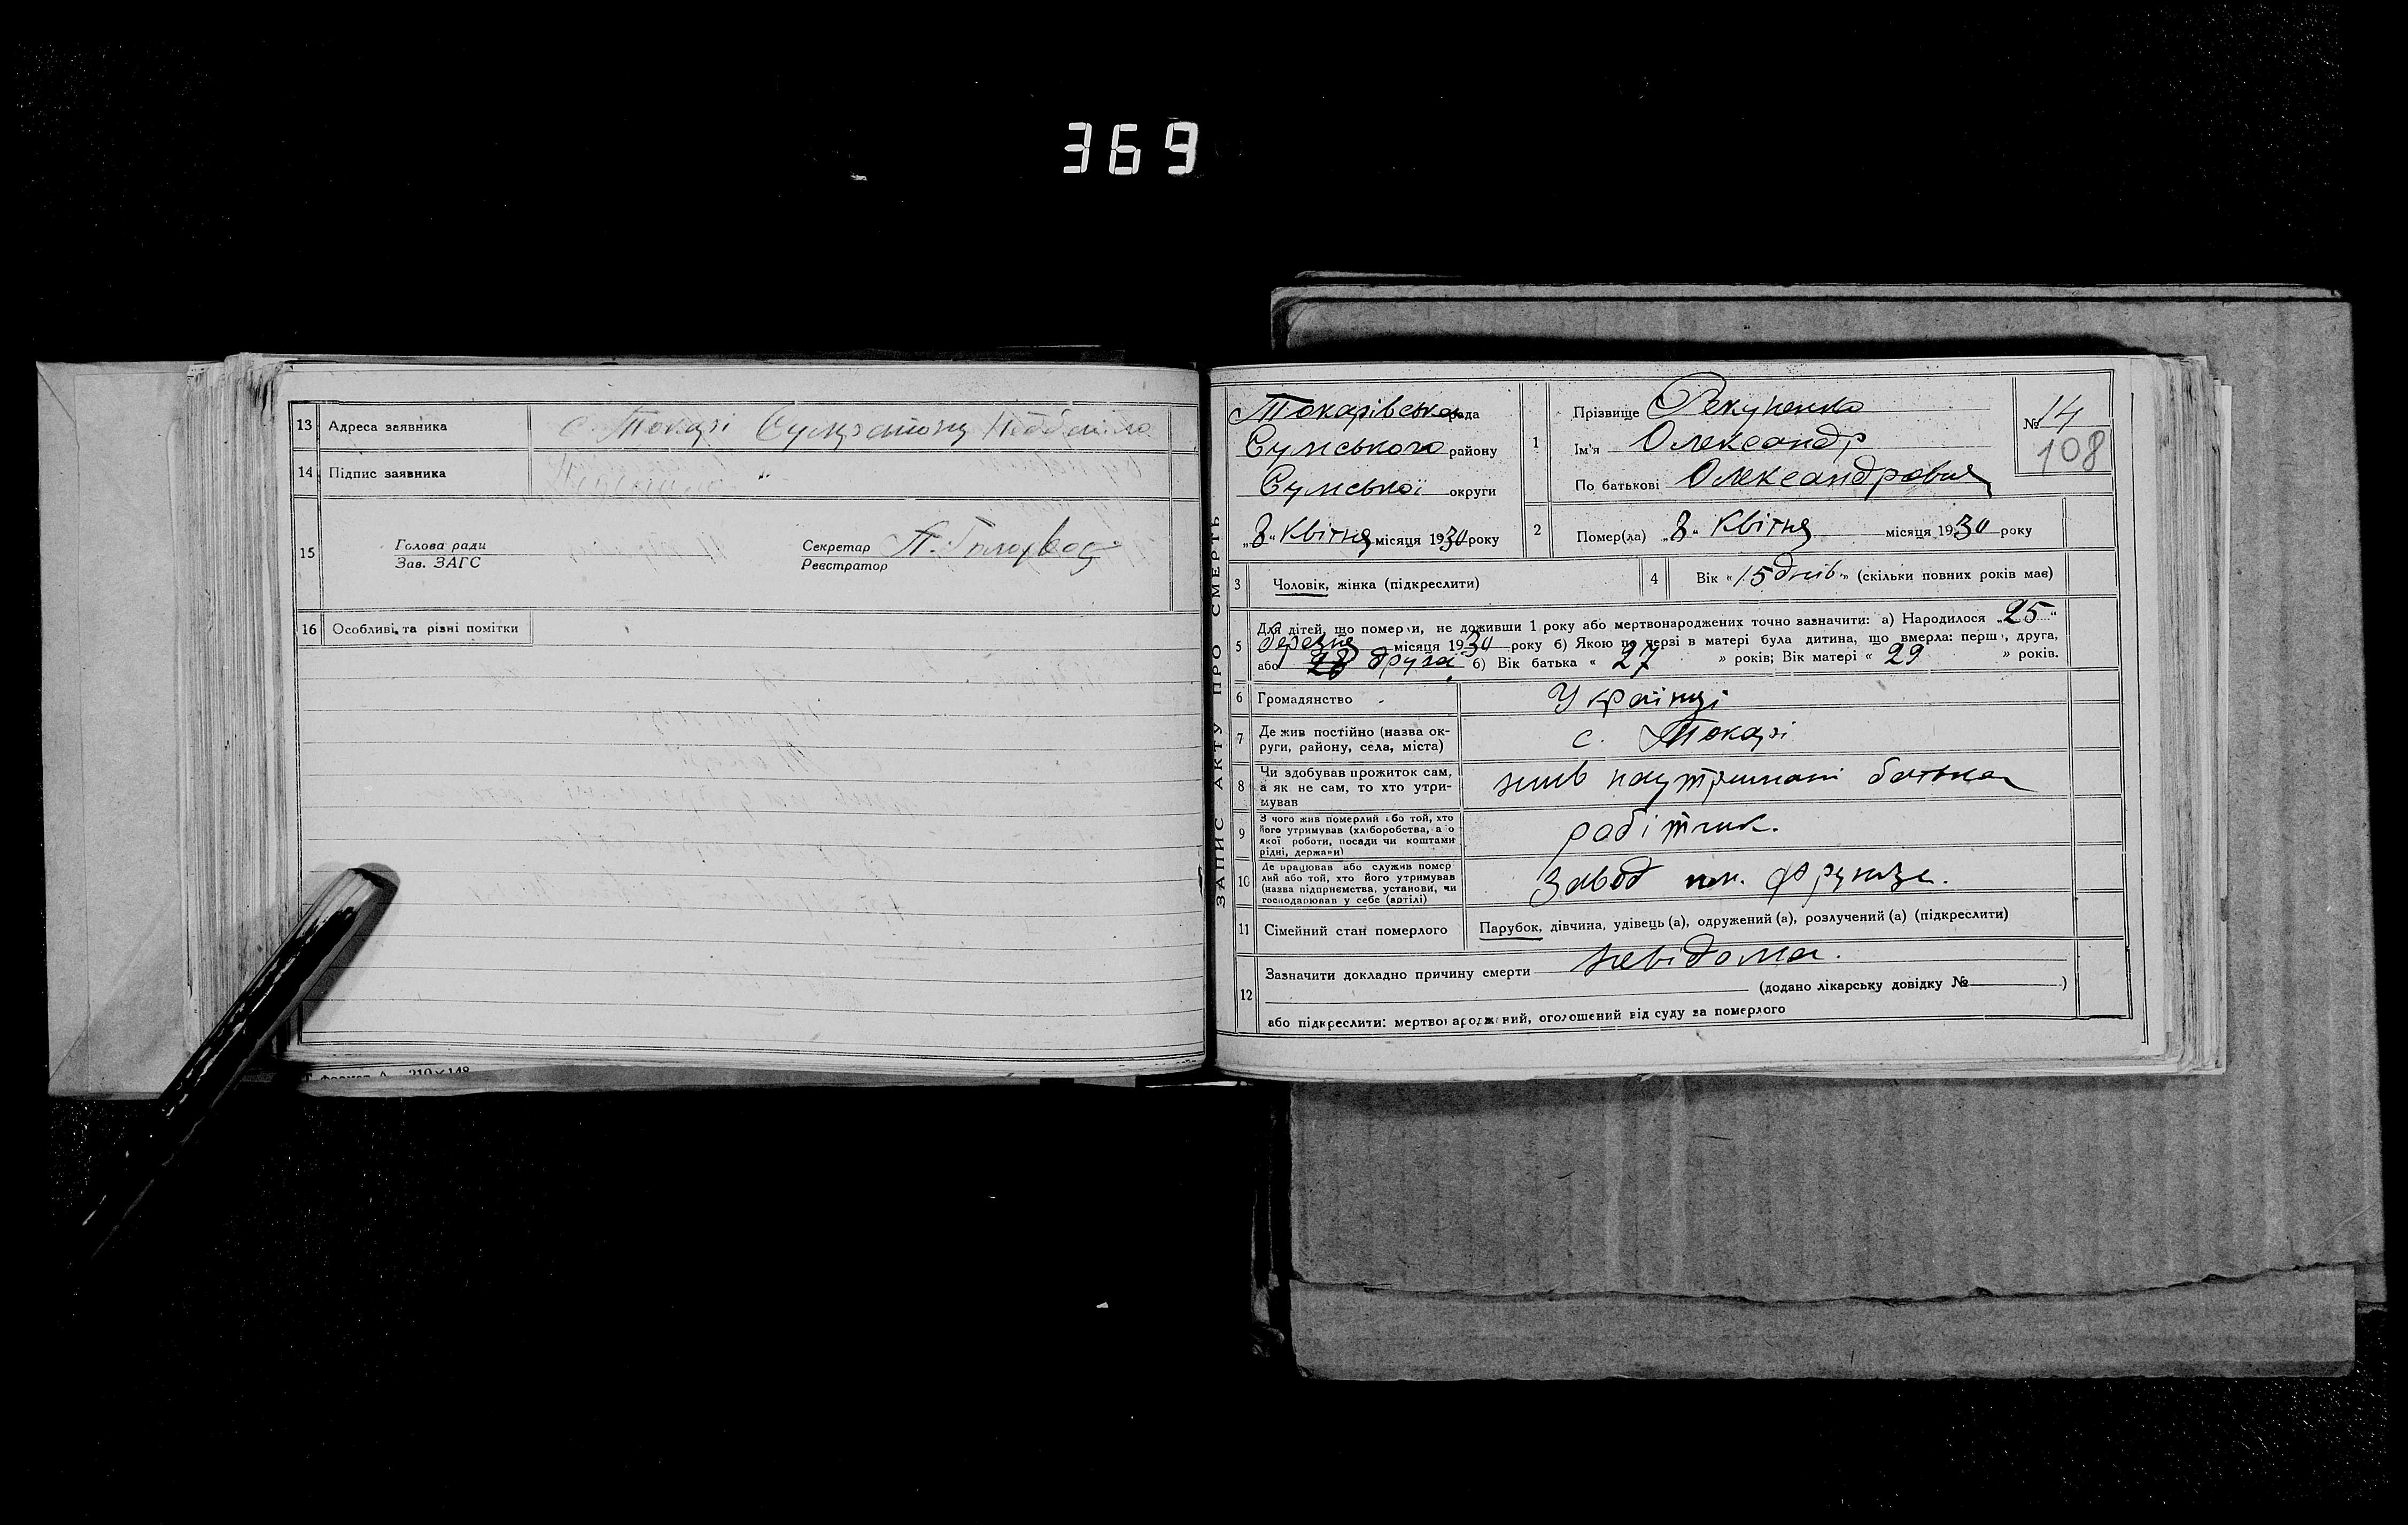 369
13 Адреса заявника с. Токарі
14 Підпис заявника
15 Голова ради
Зав. ЗАГС
Секретар
Реєстратор
16 Особливі та різні помітки
ЗАПИС АКТУ ПРО СМЕРТЬ
Токарівська рада
Сумського району
Сумської округи
„8" Квітня місяця 1930 року
1 Прізвище Рекуненко
Ім'я Олександр
По батькові Олександрович
№ 14
108
2 Помер(ла) „8" Квітня місяця 1930 року
3 Чоловік, жінка (підкреслити)
4 Вік «15 днів» (скільки повних років має)
5 Для дітей, що померли, не доживши 1 року або мертвонароджених точно зазначити: а) Народилося „25"
березня місяця 1930 року б) Якою по черзі в матері була дитина, що вмерла: перша, друга,
або друга б) Вік батька « 27 » років; Вік матері « 29 » років.
6 Громадянство Українці
7 Де жив постійно (назва ок-
руги, району, села, міста) с. Токарі
8 Чи здобував прожиток сам,
а як не сам, то хто утри-
мував жив на утриманні батька
9 З чого жив померлий або той, хто
його утримував (хліборобства, а о
якої роботи, посади чи коштами
рідні, держави) робітник.
10 Де працював або служив помер
лий або той, хто його утримував
(назва підприємства, установи, чи
господарював у себе (артілі) Завод им. Фрунзе.
11 Сімейний стан померлого Парубок, дівчина, удівець (а), одружений (а), розлучений (а) (підкреслити)
12 Зазначити докладно причину смерти невідома.
(додано лікарську довідку № )
або підкреслити: мертвонароджений, оголошений від суду за померлого